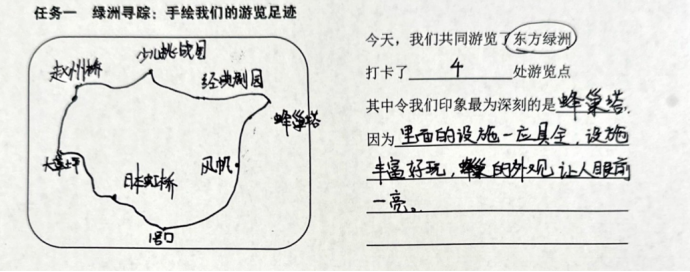 任务一 绿洲寻踪：手绘我们的游览足迹
少儿挑战园
赵州桥
经典剧园
蜂巢塔
大草坪
日本虹桥
风帆
1号口
今天，我们共同游览了东方绿洲
打卡了 4 处游览点
其中令我们印象最为深刻的是蜂巢塔，
因为里面的设施一应具全，设施
丰富好玩，蜂巢的外观让人眼前
一亮。